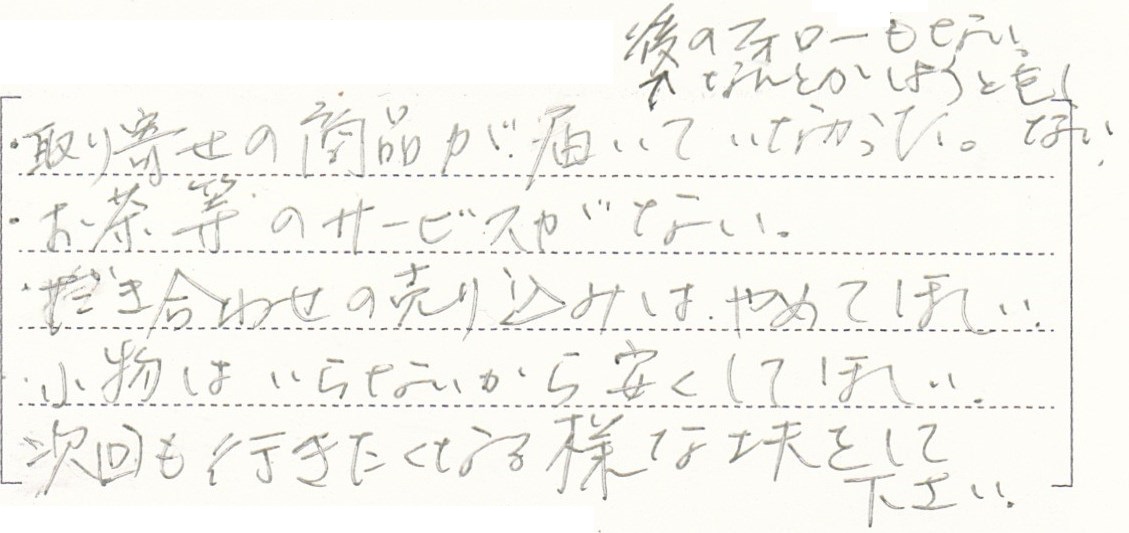 後のフォローもせない。
↑なんとかしようともし
ない。
・取り寄せの商品が届いていなかった。
・お茶等のサービスがない。
・抱き合わせの売り込みは、やめてほしい。
・小物はいらないから安くしてほしい。
次回も行きたくなる様な工夫をして
下さい。